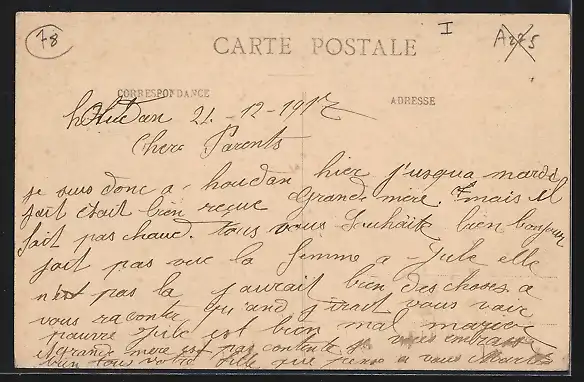 78
I
A275
CARTE POSTALE
CORRESPONDANCE
ADRESSE
houdan 21-12-1917
Chers Parents
je suis donc a houdan hier jusqua mardi
jait était bien reçue Grande mère. mais il
fait pas chaud. tous vous souhaite bien bonjour
jait pas vue la femme a Jule elle
n'est pas la jaurait bien des choses a
vous raconter qu'and j'irait vous voir
pauvre Jule est bien mal marier
et grande mère est pas contente je vous embrasse
bien tous votre fille que pense a vous